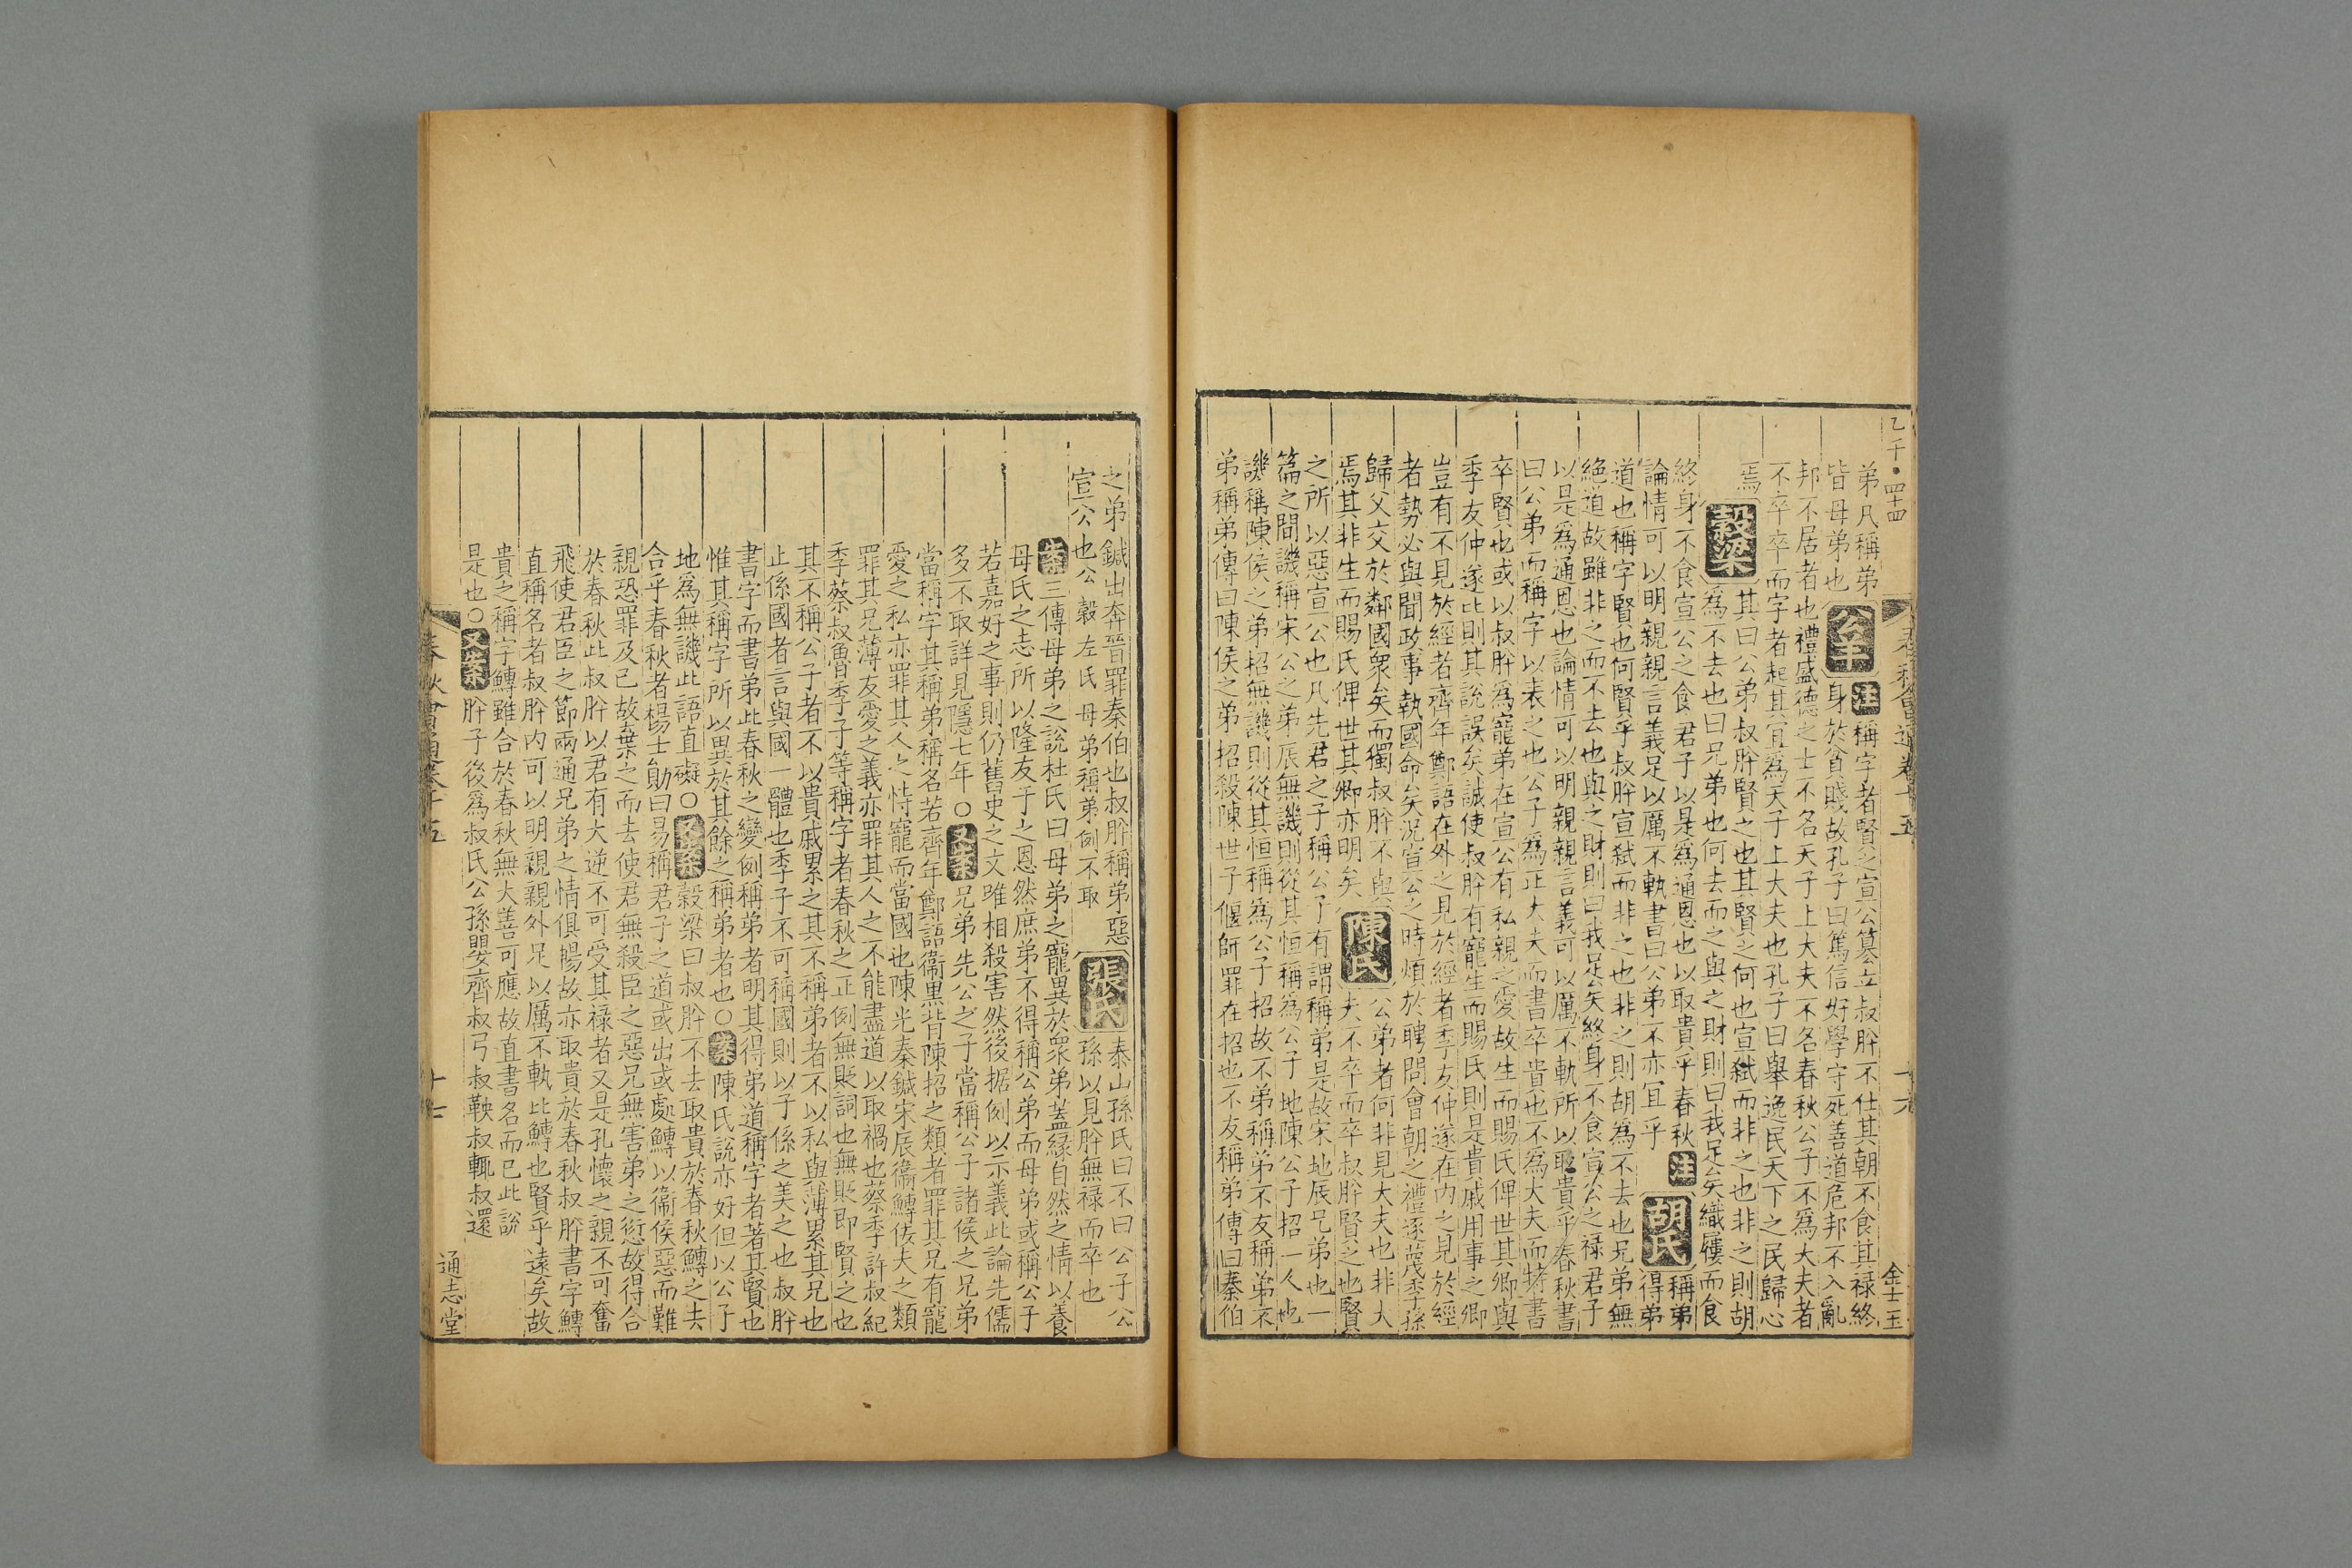 乙千·四十四 春秋會通卷十五 十六 金士玉
弟凡稱弟 注 稱字者賢之宣公簒立叔肸不仕其朝不食其禄終
皆母弟也 公羊 身於貧賤故孔子曰篤信好學守死善道危邦不入亂
邦不居者也禮盛德之士不名天子上大夫不名春秋公子不為大夫者
不卒卒而字者起其宜為天子上大夫也孔子曰舉逸民天下之民歸心
焉 其曰公弟叔肸賢之也其賢之何也宣弑而非之也非之則胡
穀梁 為不去也曰兄弟也何去而之與之財則曰我足矣織屨而食
終身不食宣公之食君子以是為通恩也以取貴乎春秋 注 稱弟
論情可以明親親言義足以厲不軌書曰公弟不亦宜乎 胡氏 得弟
道也稱字賢也何賢乎叔肸宣弑而非之也非之則胡為不去也兄弟無
絕道故雖非之而不去也與之財則曰我足矣終身不食宣公之禄君子
以是為通恩也論情可以明親親言義可以厲不軌所以取貴乎春秋書
曰公弟而稱字以表之也公子為正大夫而書卒貴也不為大夫而特書
卒賢也或以叔肸為寵弟在宣公有私親之愛故生而賜氏俾世其卿與
季友仲遂比則其說誤矣誠使叔肸有寵生而賜氏則是貴戚用事之卿
豈有不見於經者齊年鄭語在外之見於經者季友仲遂在内之見於經
者勢必與聞政事執國命矣況宣公之時煩於聘問會朝之禮遂蔑季孫
歸父交於鄰國衆矣而獨叔肸不與 公弟者何非見大夫也非大
焉其非生而賜氏俾世其卿亦明矣 陳氏 夫不卒而卒叔肸賢之也賢
之所以惡宣公也凡先君之子稱公子有謂稱弟是故宋地辰兄弟也一
篇之間譏稱宋公之弟辰無譏則從其恒稱為公子地陳公子招一人也
譏稱陳侯之弟招無譏則從其恒稱為公子招故不弟稱弟不友稱弟不
弟稱弟傳曰陳侯之弟招殺陳世子偃師罪在招也不友稱弟傳曰秦伯
之弟鍼出奔晉罪秦伯也叔肸稱弟惡 泰山孫氏曰不曰公子公
宣公也公穀左氏母弟稱弟例不取 張氏 孫以見肸無禄而卒也
案 三傳母弟之說杜氏曰母弟之寵異於衆弟蓋緣自然之情以養
母氏之志所以隆友于之恩然庶弟不得稱公弟而母弟或稱公子
若嘉好之事則仍舊史之文唯相殺害然後据例以示義此論先儒
多不取詳見隱七年○ 又案 兄弟先公之子當稱公子諸侯之兄弟
當稱字其稱弟稱名若齊年鄭語衞黑背陳招之類者罪其兄有寵
愛之私亦罪其人之恃寵而當國也陳光秦鍼宋辰衞鱄佞夫之類
罪其兄薄友愛之義亦罪其人之不能盡道以取禍也蔡季許叔紀
季蔡叔魯季子等稱字者春秋之正例無貶詞也無貶即賢之也
其不稱公子者不以貴戚累之其不稱弟者不以私與薄累其兄也
止係國者言與國一體也季子不可稱國則以子係之美之也叔肸
書字而書弟此春秋之變例稱弟者明其得弟道稱字者著其賢也
惟其稱字所以異於其餘之稱弟者也○ 案 陳氏說亦好但以公子
地為無譏此語直礙○ 又案 穀梁曰叔肸不去取貴於春秋鱄之去
合乎春秋者楊士勛曰易稱君子之道或出或處鱄以衞侯惡而難
親恐罪及已故棄之而去使君無殺臣之惡兄無害弟之愆故得合
於春秋此叔肸以君有大逆不可受其禄者又是孔懷之親不可奮
飛使君臣之節兩通兄弟之情俱暢故亦取貴於春秋叔肸書字鱄
直稱名者叔肸内可以明親親外足以厲不軌比鱄也賢乎遠矣故
貴之稱字鱄雖合於春秋無大善可應故直書名而已此説
是也○ 又案 肸子後爲叔氏公孫嬰齊叔弓叔鞅叔輒叔還
春秋會通卷十五 十七 通志堂